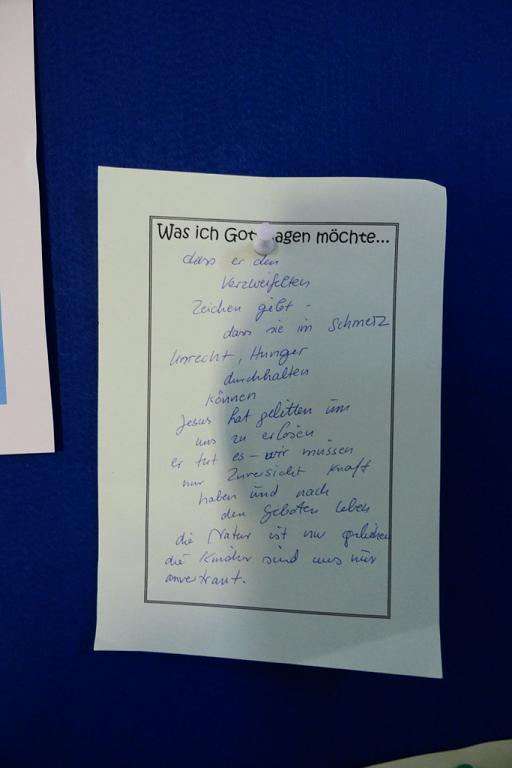 Was ich Gott sagen möchte...
dass er den
Verzweifelten
Zeichen gibt -
dass sie im Schmerz
Unrecht, Hunger
durchhalten
können
Jesus hat gelitten um
uns zu erlösen
er tut es - wir müssen
nur Zuversicht Kraft
haben und nach
den Geboten leben
die Natur ist nur geliehen
die Kinder sind uns nur
anvertraut.